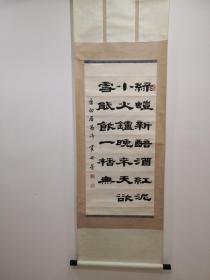 綠螘新醅酒紅泥
小火鑪晚來天欲
雪能飲一桮無
唐白居易詩